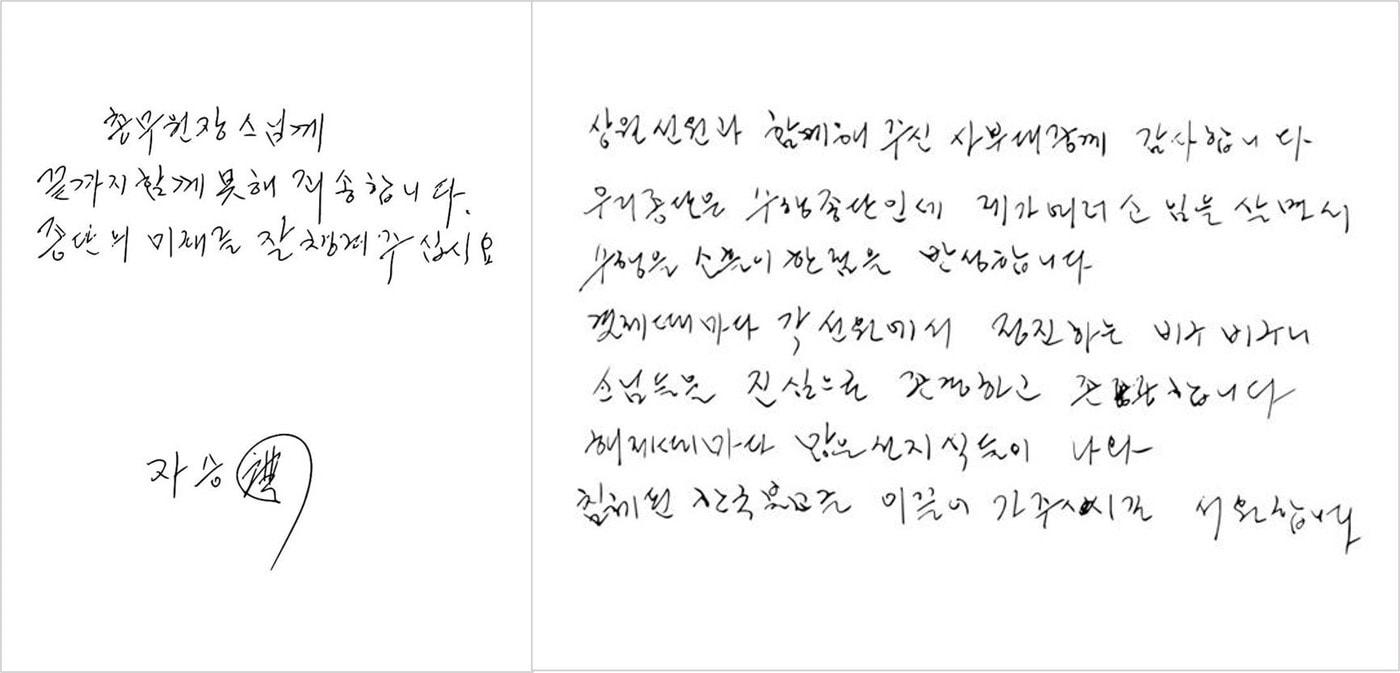 총무원장스님께
끝까지함께못해 죄송합니다.
종단의 미래를 잘 챙겨주십시요
자승
상월선원과 함께해 주신 사부대중께 감사합니다.
우리종단은 수행종단인데 제가여러 스님을 살면서
수행을 소홀이한점을 반성합니다
결제때마다 각 선원에서 정진하는 비구 비구니
스님들을 진심으로 존경하고 존중합니다
해제때마다 많은선지식들이 나와
침체된 한국불교를 이끌어 가주시시길 서원합니다